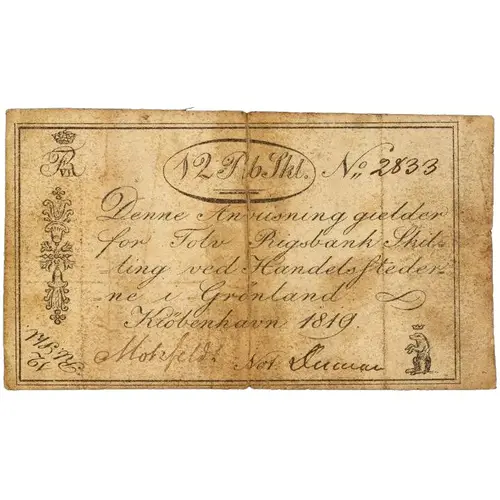 12 Rb. Skl. No. 2833
Denne Anvisning gielder
for Tolv Rigsbank Skil-
ling ved Handelssteder-
ne i Grönland.
Kiöbenhavn 1819.
Not.
12 Rb. Skl.